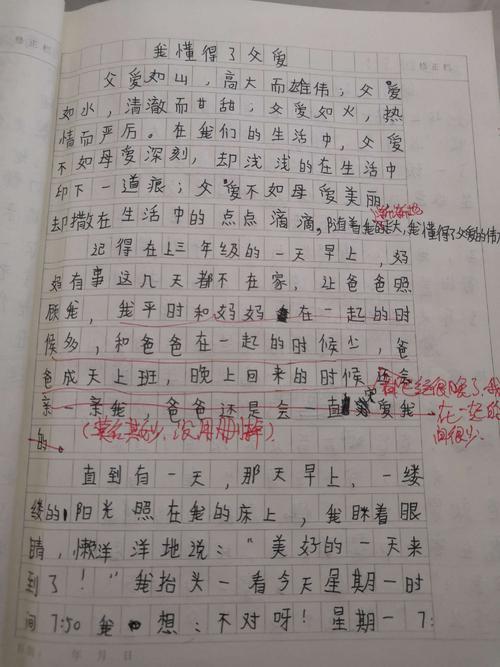 修正栏
修正栏
我懂得了父爱
父爱如山，高大而雄伟；父爱
如水，清澈而甘甜；父爱如火，热
情而严厉。在我们的生活中，父爱
不如母爱深刻，却浅浅的在生活中
印下一道痕；父爱不如母爱美丽
却撒在生活中的点点滴滴。随着我的长大，我懂得了父爱的伟大
记得在上三年级的一天早上，妈
妈有事这几天都不在家，让爸爸照
顾我，我平时和妈妈在一起的时
候多，和爸爸在一起的时候少，爸
爸成天上班，晚上回来的时候
亲一亲我，爸爸还是会一直爱我
在一起的
间很少.
的。
(莫名其妙，没用删掉)
直到有一天，那天早上，一缕
缕的阳光照在我的床上，我眯着眼
睛，懒洋洋地说："美好的一天来
到了！"我抬头一看今天星期一时
间7:50我想：不对呀！星期一7:
年 月 日